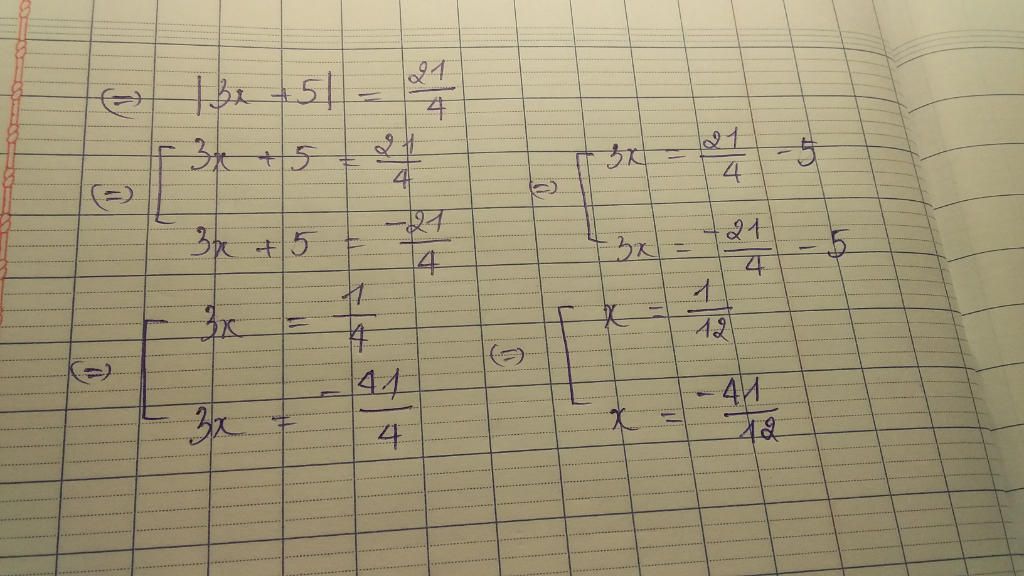 (=) |3x + 5| = 21/4
(=) [ 3x + 5 = 21/4
3x + 5 = -21/4
(=) [ 3x = 21/4 - 5
3x = -21/4 - 5
(=) [ 3x = 1/4
3x = -41/4
(=) [ x = 1/12
x = -41/12